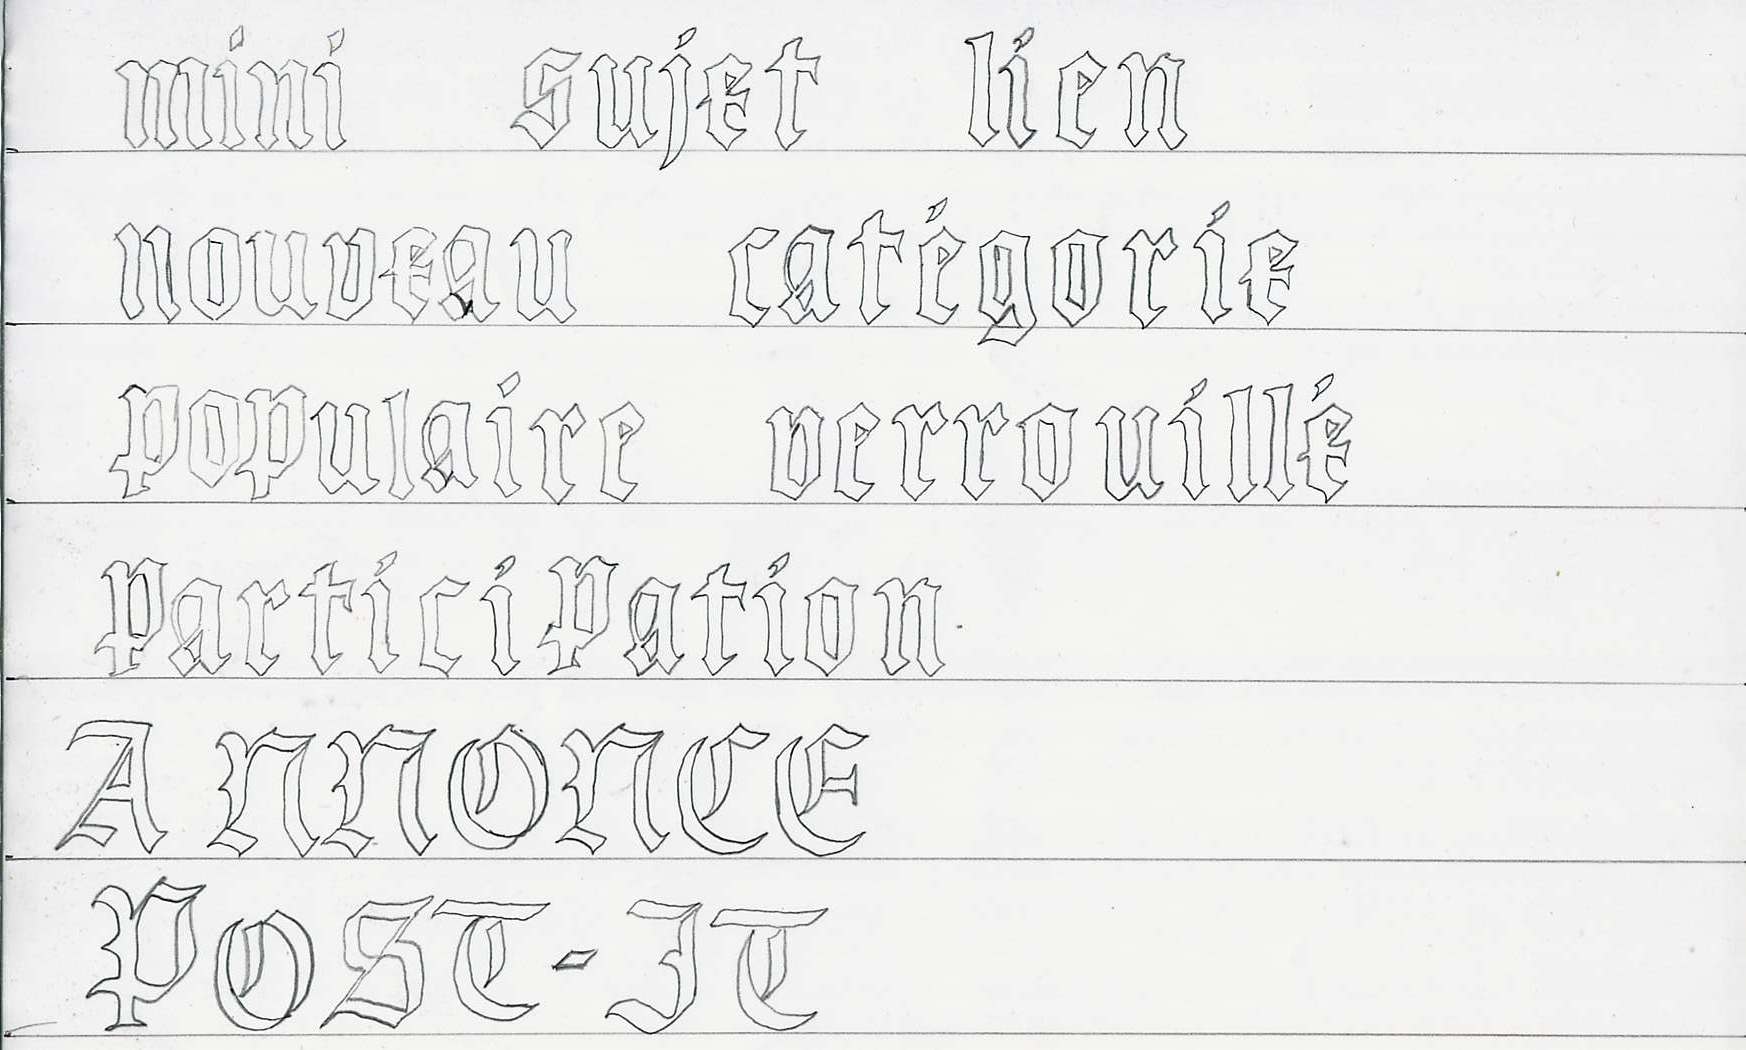 mini sujet lien
nouveau catégorie
populaire verrouillé
participation
ANNONCE
POST-IT